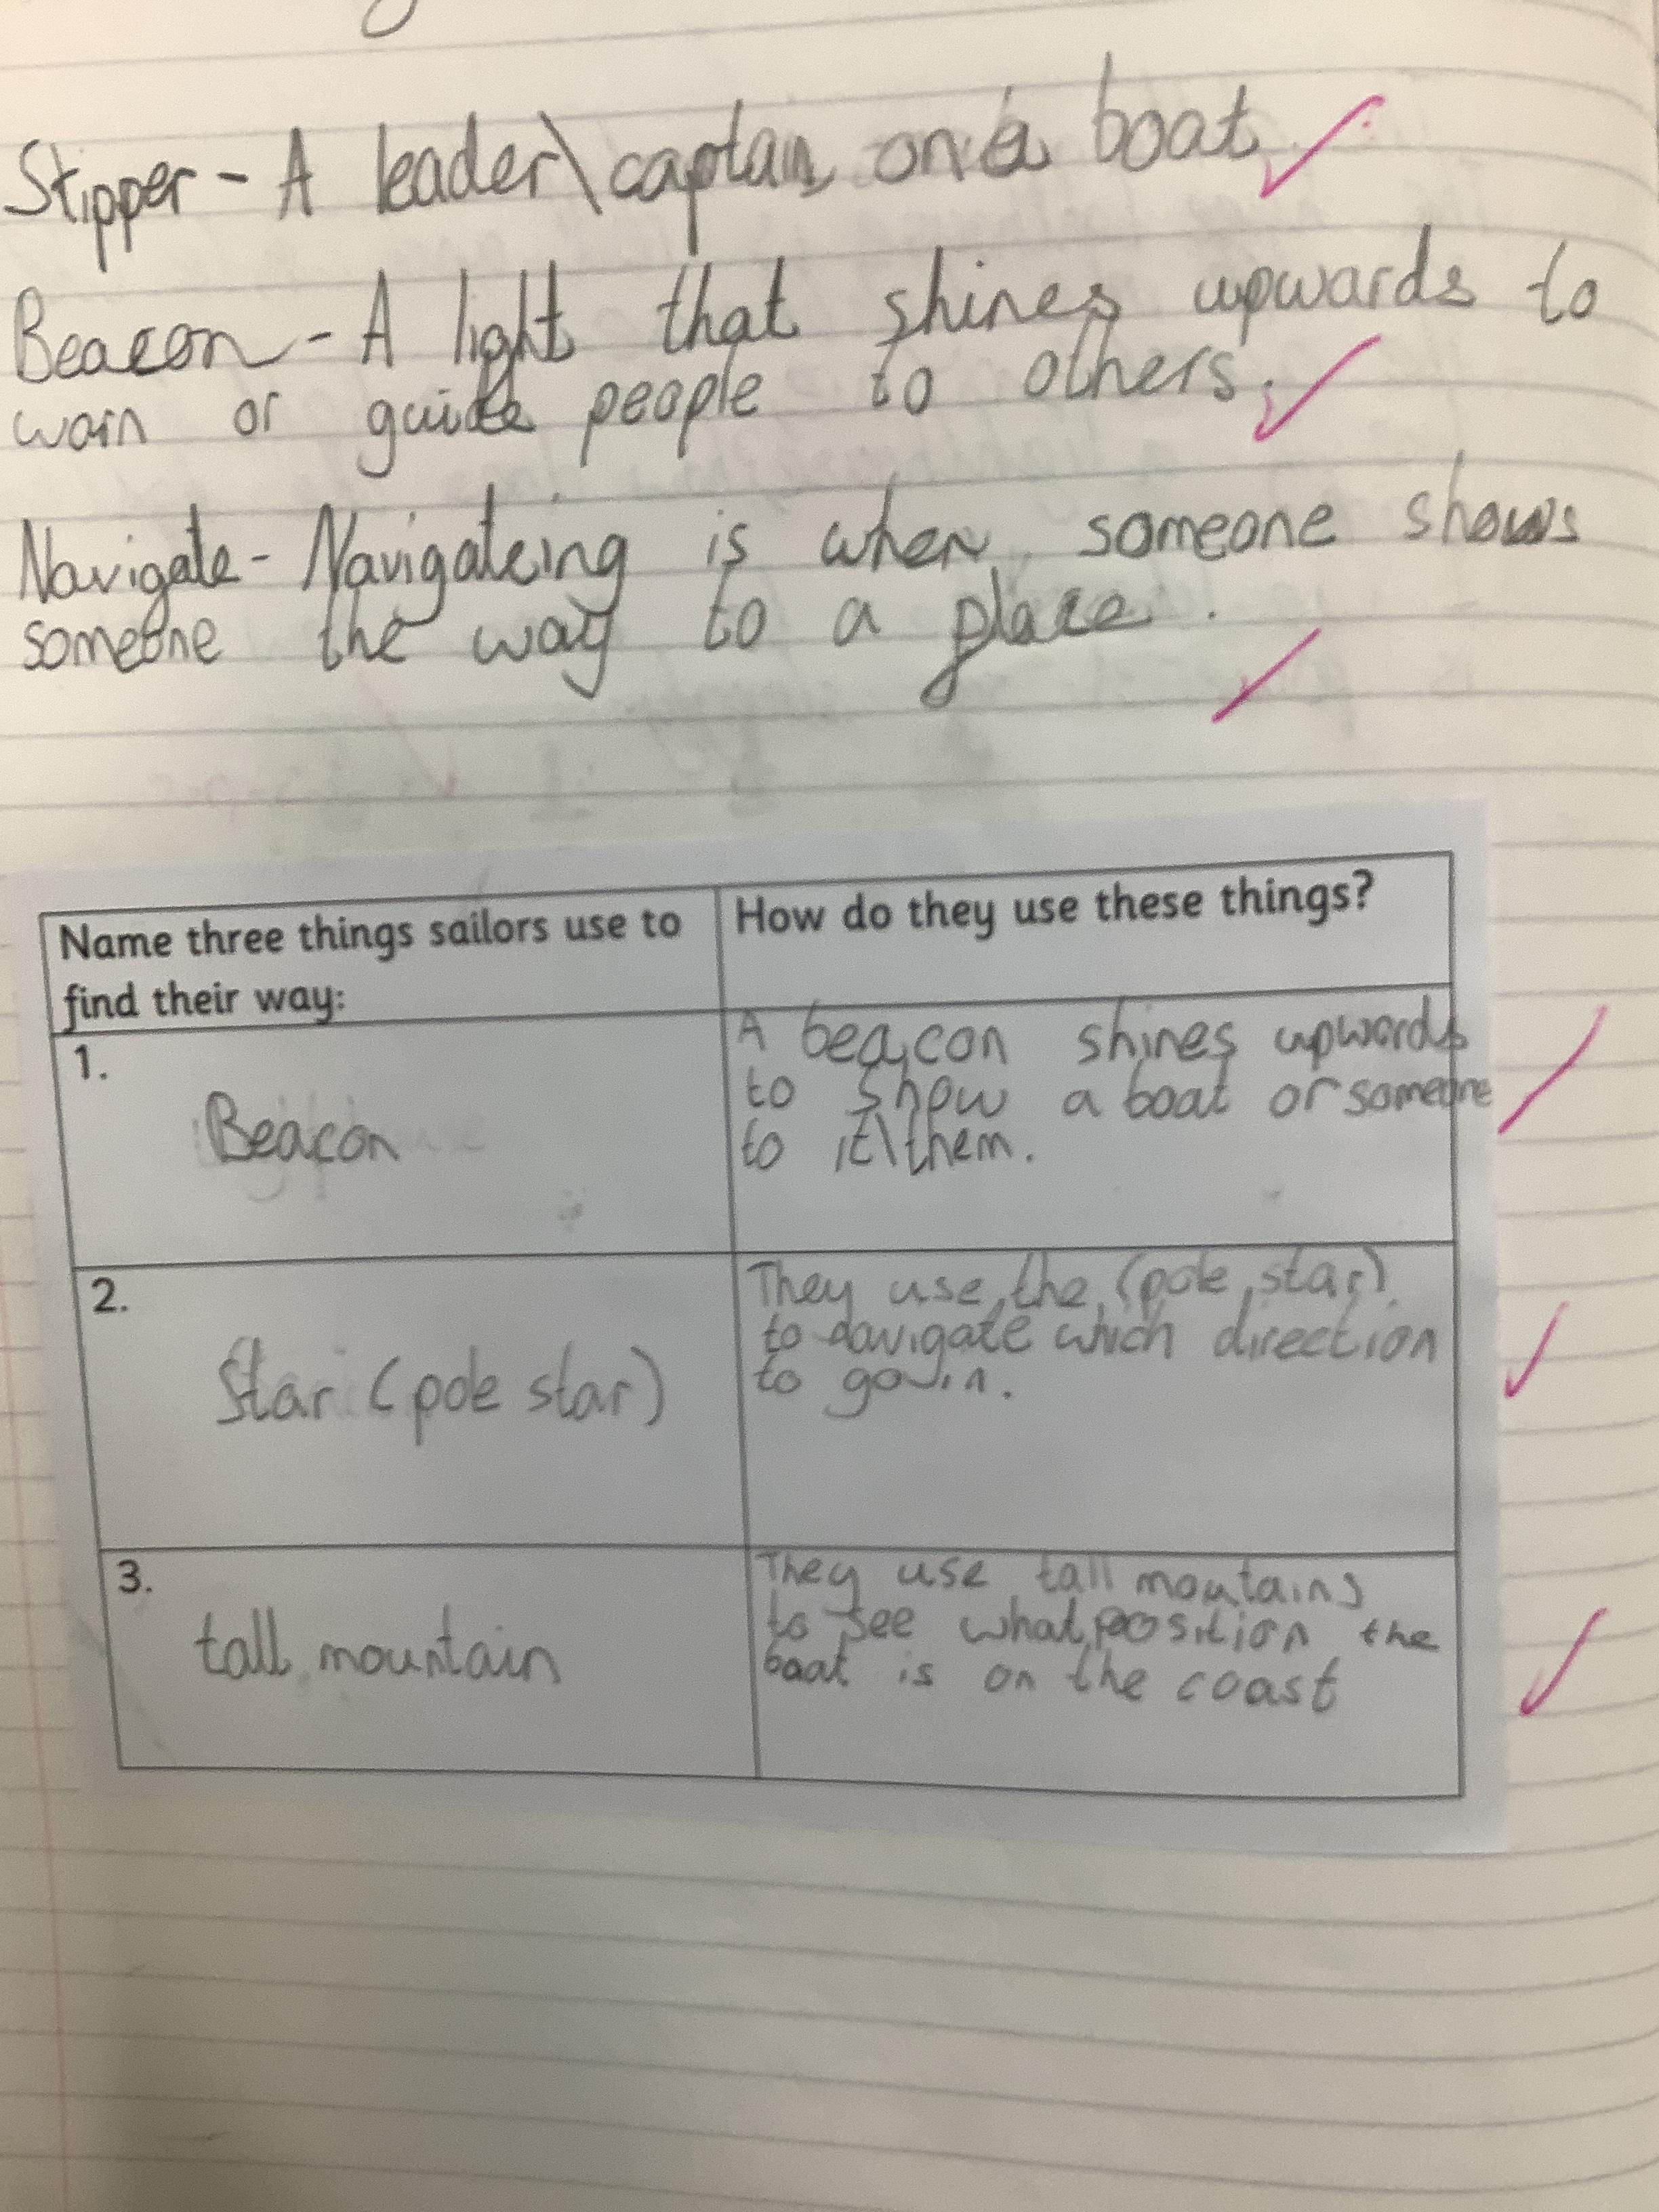 Skipper - A leader\captain on a boat
Beacon - A light that shines upwards to
warn or guide people to others.
Navigate - Navigateing is when someone shows
someone the way to a place.
Name three things sailors use to
find their way:
How do they use these things?
1.
Beacon
A beacon shines upwards
to show a boat or someone
to it\them.
2.
Star (pole star)
They use the (pole star)
to navigate which direction
to go in.
3.
tall mountain
They use tall moutains
to see what position the
boat is on the coast